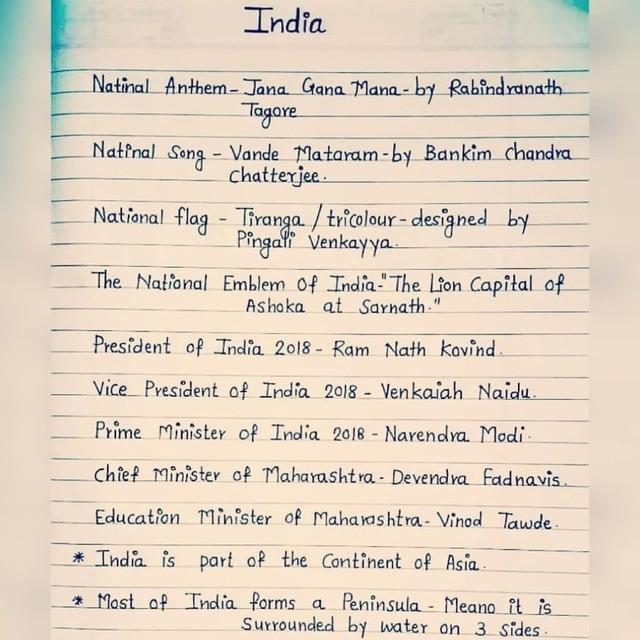 India
Natinal Anthem - Jana Gana Mana - by Rabindranath
Tagore
Natinal Song - Vande Mataram - by Bankim Chandra
Chatterjee.
National flag - Tiranga / tricolour - designed by
Pingali Venkayya.
The National Emblem Of India - "The Lion Capital of
Ashoka at Sarnath."
President of India 2018 - Ram Nath Kovind.
Vice President of India 2018 - Venkaiah Naidu.
Prime Minister of India 2018 - Narendra Modi.
Chief Minister of Maharashtra - Devendra Fadnavis.
Education Minister of Maharashtra - Vinod Tawde.
* India is part of the Continent of Asia.
* Most of India forms a Peninsula - Meano it is
Surrounded by water on 3 sides.